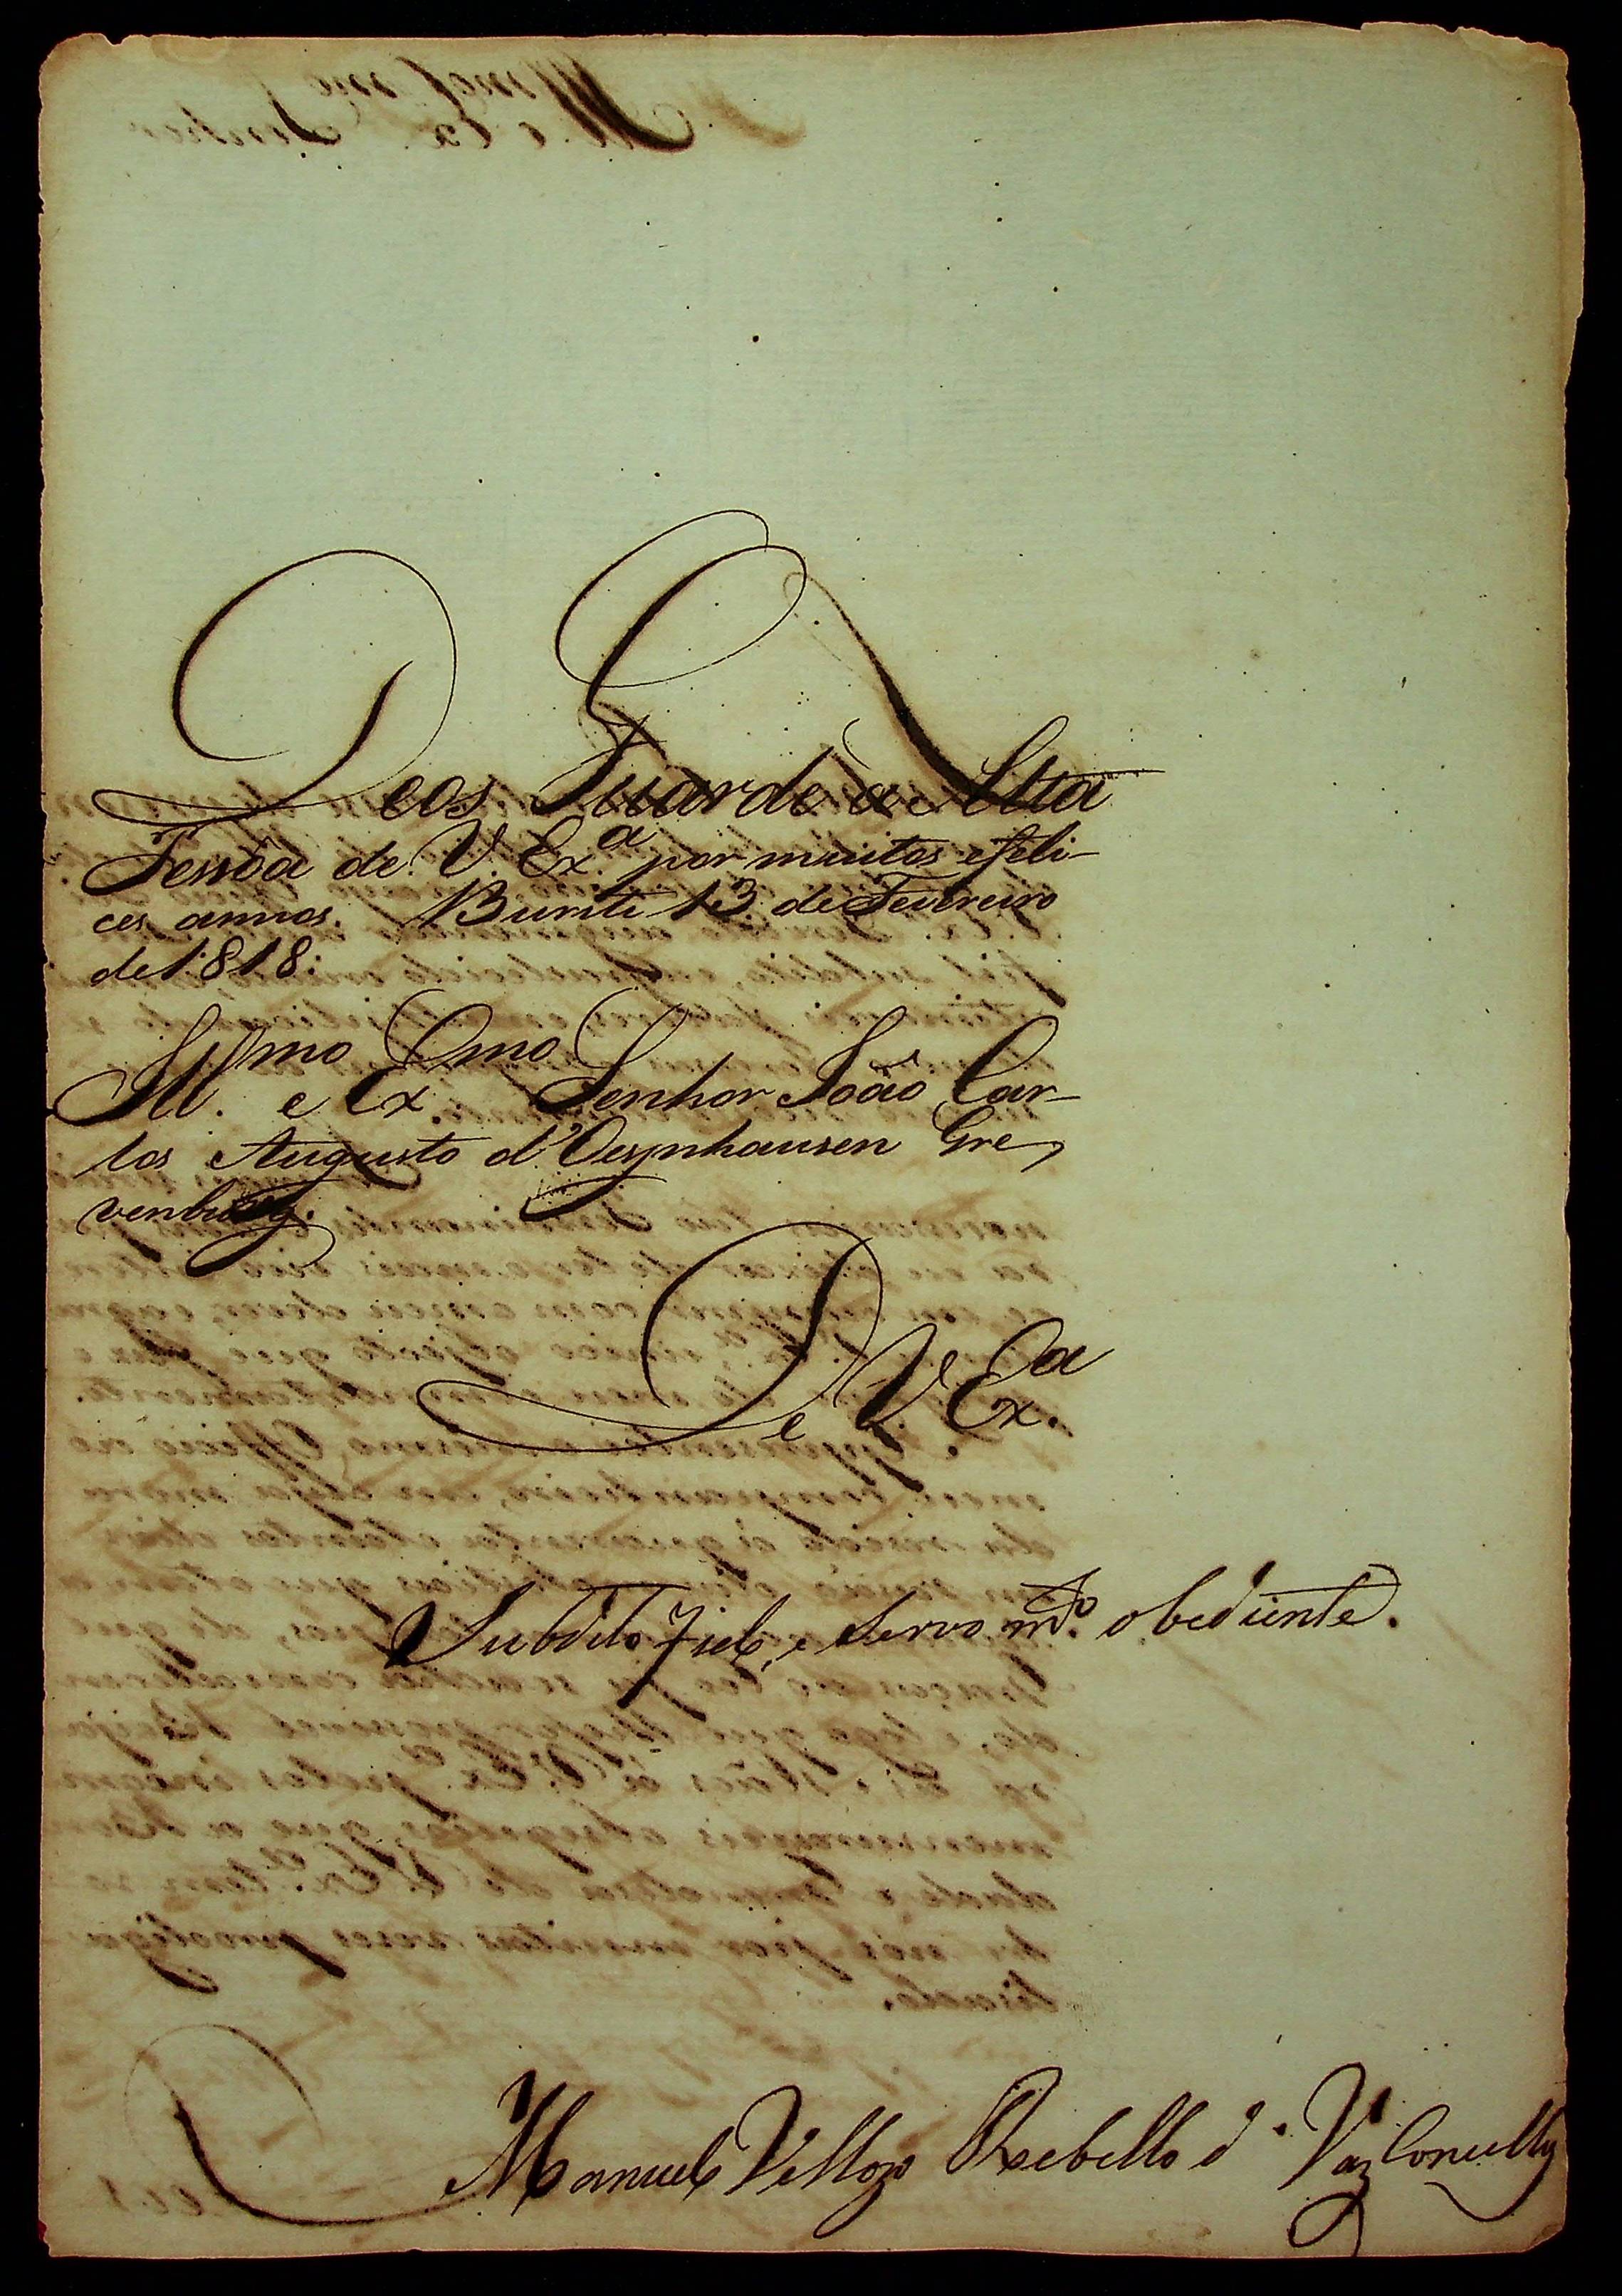 Deos Guarde a Alta
Pessôa de V. Ex.ª por muitos efeli-
ces annos. Buriti 13 de Fevreiro
de 1818.
Ill.mo e Ex.mo Senhor João Car-
los Augusto d'Oeynhausen Gre
venburg.
De V Ex.ª
Subdito Fiel, e Servo m.to obediente.
Manuel Vellozo Rebello d' Vazconcellos